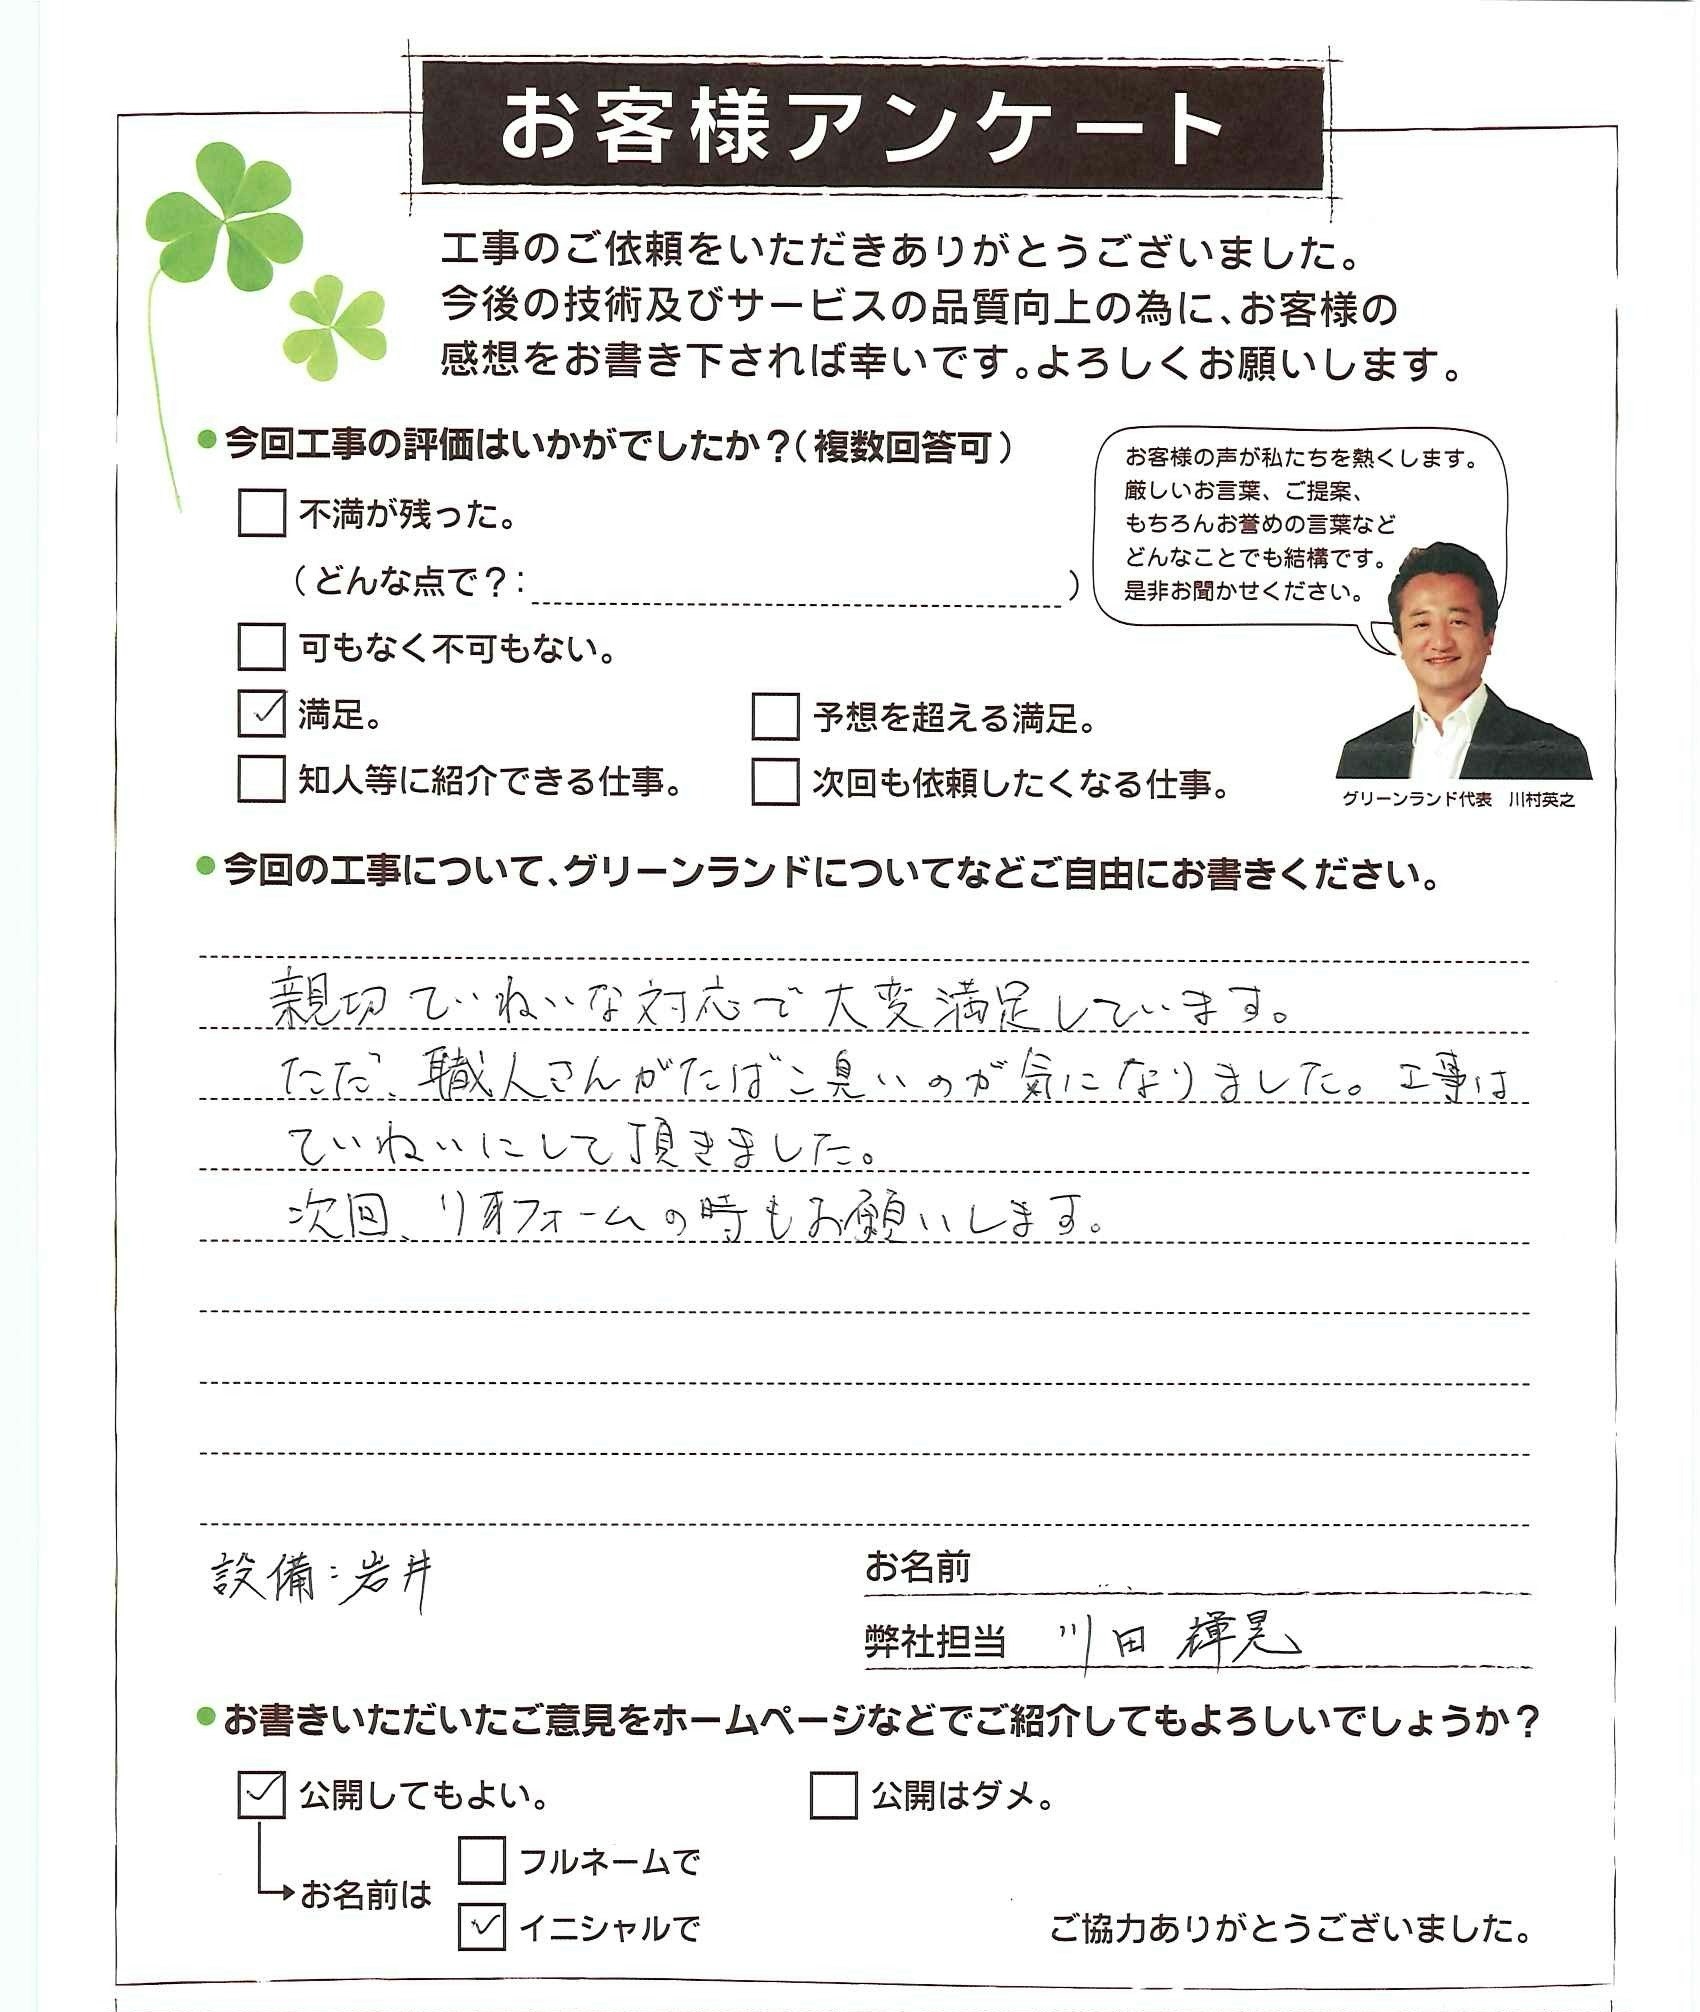 お客様アンケート
工事のご依頼をいただきありがとうございました。
今後の技術及びサービスの品質向上の為に、お客様の
感想をお書き下されば幸いです。よろしくお願いします。
●今回工事の評価はいかがでしたか？（複数回答可）
不満が残った。
（どんな点で？：　　　）
可もなく不可もない。
✓ 満足。
予想を超える満足。
知人等に紹介できる仕事。
次回も依頼したくなる仕事。
お客様の声が私たちを熱くします。
厳しいお言葉、ご提案、
もちろんお誉めの言葉など
どんなことでも結構です。
是非お聞かせください。
グリーンランド代表　川村英之
●今回の工事について、グリーンランドについてなどご自由にお書きください。
親切ていねいな対応で大変満足しています。
ただ、職人さんがたばこ臭いのが気になりました。工事は
ていねいにして頂きました。
次回、リフォームの時もお願いします。
設備：岩井
お名前
弊社担当　川田 輝晃
●お書きいただいたご意見をホームページなどでご紹介してもよろしいでしょうか？
✓ 公開してもよい。
公開はダメ。
お名前は
フルネームで
✓ イニシャルで
ご協力ありがとうございました。